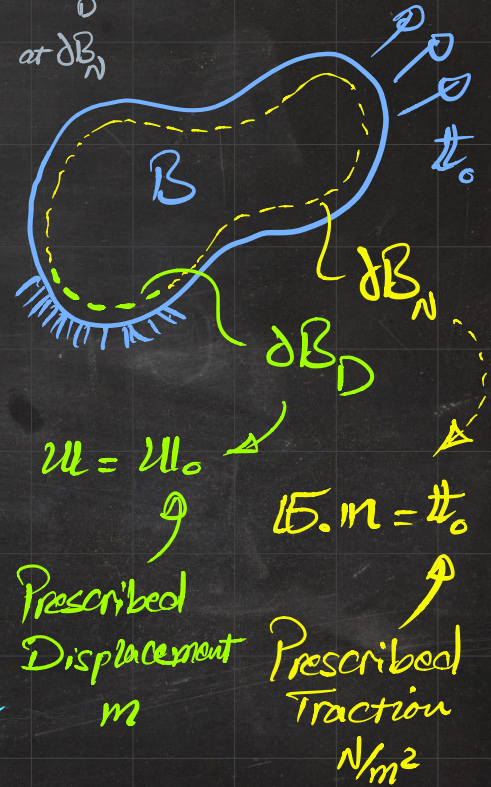 D
at ∂B_N
t₀
B
∂B_N
∂B_D
u = u₀
σ.n = t₀
Prescribed
Displacement
m
Prescribed
Traction
N/m²